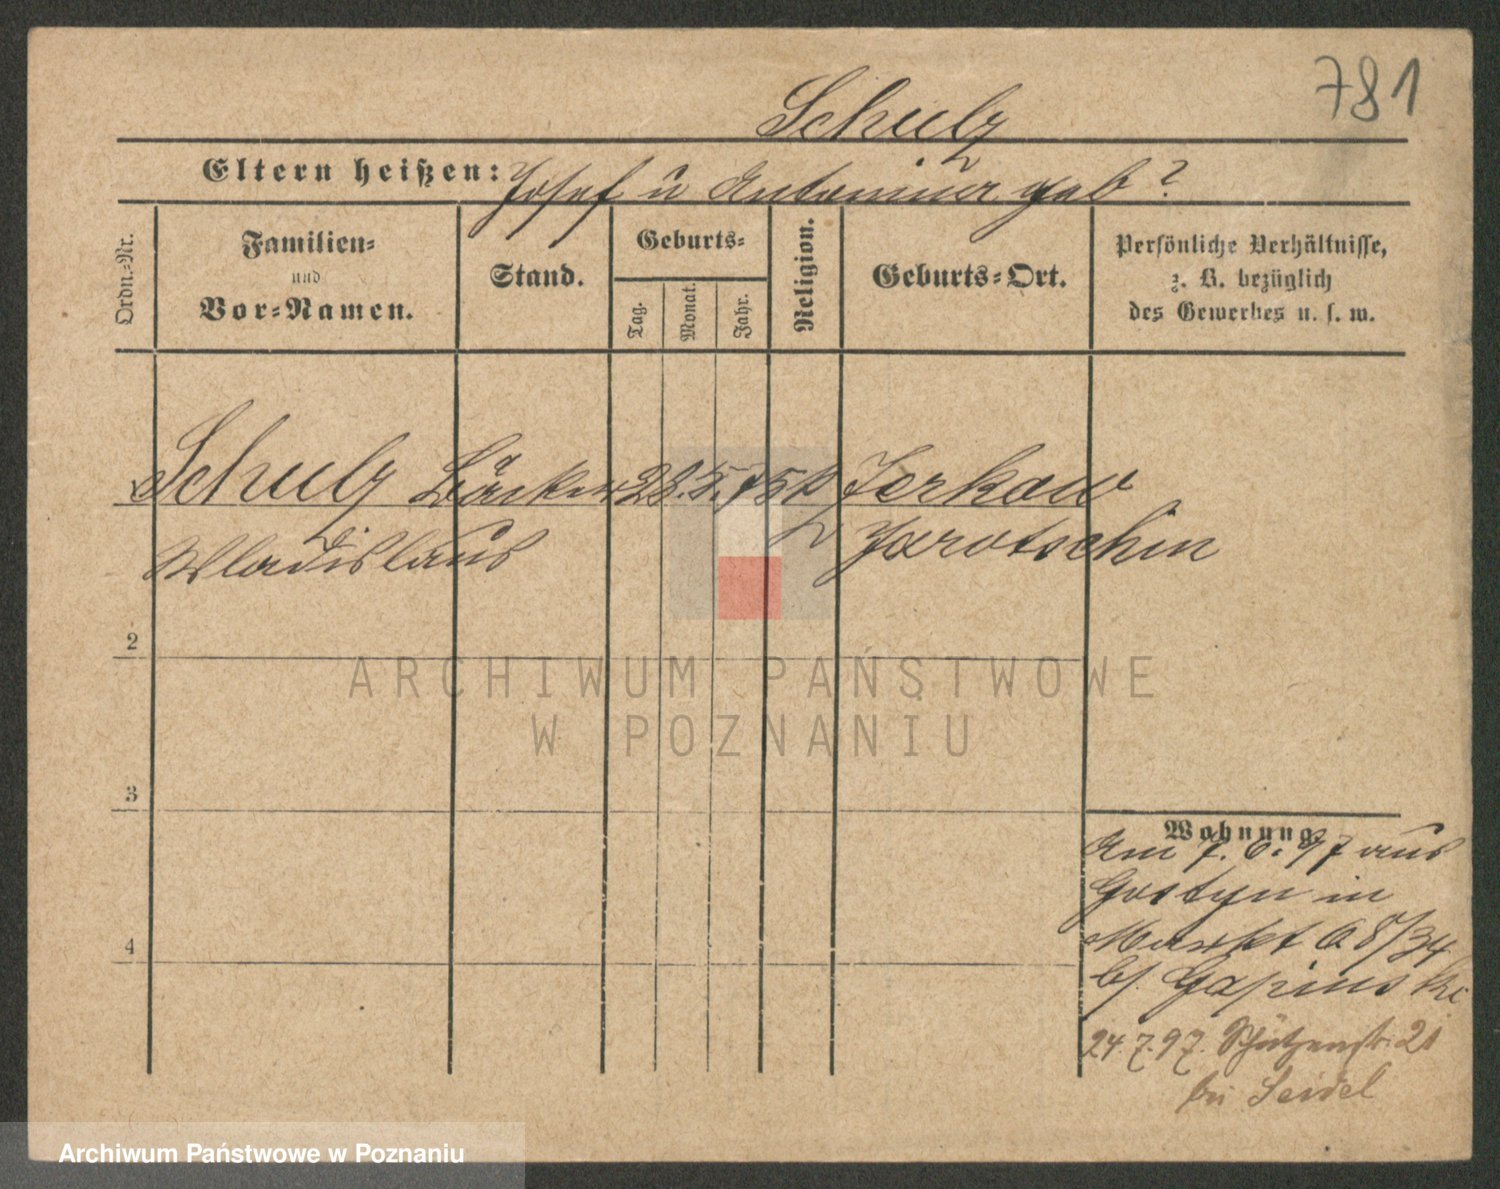 781
Schulz
Eltern heißen: Josef u Antonina geb ?
Ordn.-Nr.
Familien-
und
Vor-Namen.
Stand.
Geburts-
Tag.
Monat.
Jahr.
Religion.
Geburts-Ort.
Persönliche Verhältnisse,
z. B. bezüglich
des Gewerbes u. s. w.
Schulz Bäcker 28. 5. 75 k Jerkow
Wladislaus Jarotschin
2
3
4
Wohnung
Am 7. 6. 97 aus
Gostyn in
Markt 68/34
bj.
24. 7. 97. Schützenstr. 21
bei Seidel
ARCHIWUM PAŃSTWOWE
W POZNANIU
Archiwum Państwowe w Poznaniu